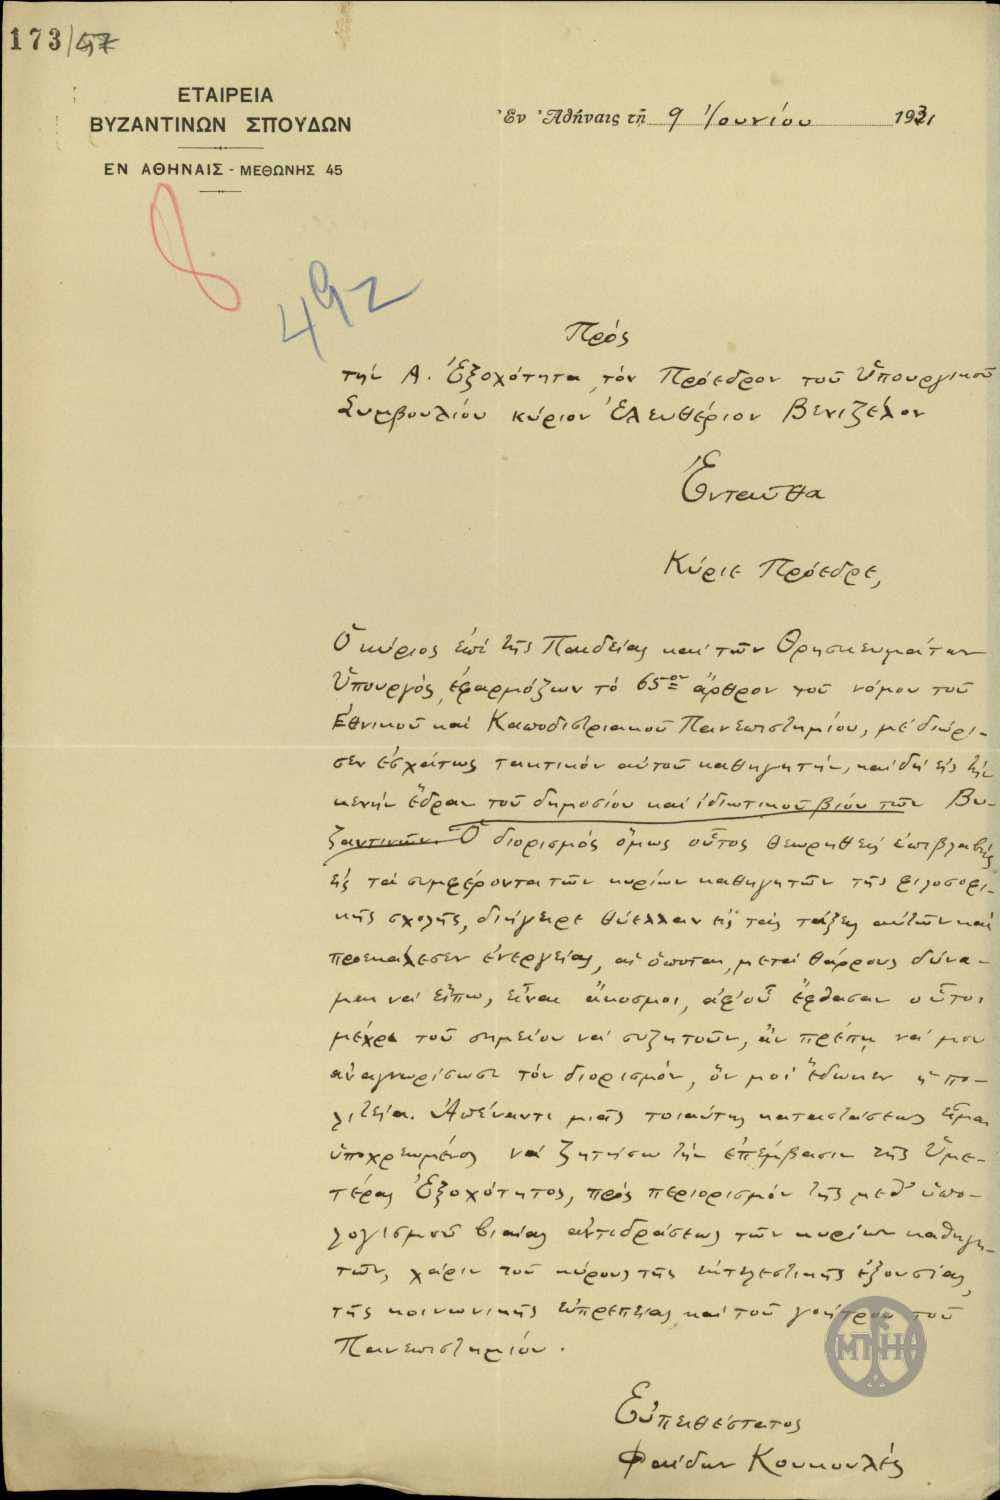 173/47
ΕΤΑΙΡΕΙΑ
ΒΥΖΑΝΤΙΝΩΝ ΣΠΟΥΔΩΝ
ΕΝ ΑΘΗΝΑΙΣ - ΜΕΘΩΝΗΣ 45
Ἐν Ἀθήναις τῇ 9 Ἰουνίου 1931
8
492
Πρός
τὴν Α. Ἐξοχότητα, τὸν Πρόεδρον τοῦ Ὑπουργικοῦ
Συμβουλίου κύριον Ἐλευθέριον Βενιζέλον
Ἐνταῦθα
Κύριε Πρόεδρε,
Ὁ κύριος ἐπὶ τῆς Παιδείας καὶ τῶν Θρησκευμάτων
Ὑπουργός, ἐφαρμόζων τὸ 65ον ἄρθρον τοῦ νόμου τοῦ
Ἐθνικοῦ καὶ Καποδιστριακοῦ Πανεπιστημίου, μὲ διώρι-
σεν ἐσχάτως τακτικὸν αὐτοῦ καθηγητήν, καὶ δὴ εἰς τὴν
κενὴν ἕδραν τοῦ δημοσίου καὶ ἰδιωτικοῦ βίου τῶν Βυ-
ζαντινῶν. Ὁ διορισμὸς ὅμως οὗτος θεωρηθεὶς ἐπιβλαβὴς
εἰς τὰ συμφέροντα τῶν κυρίων καθηγητῶν τῆς φιλοσοφι-
κῆς σχολῆς, διήγειρε θύελλαν εἰς τὰς τάξεις αὐτῶν καὶ
προεκάλεσεν ἐνεργείας, αἱ ὁποῖαι, μετὰ θάρρους δύνα-
μαι νὰ εἴπω, εἶναι ἄκοσμοι, ἀφ' οὗ ἔφθασαν οὗτοι
μέχρι τοῦ σημείου νὰ συζητοῦν, ἂν πρέπῃ νὰ μοῦ
ἀναγνωρίσωσι τὸν διορισμόν, ὃν μοὶ ἔδωκεν ἡ πο-
λιτεία. Ἀπέναντι μιᾶς τοιαύτης καταστάσεως εἶμαι
ὑποχρεωμένος νὰ ζητήσω τὴν ἐπέμβασιν τῆς Ὑμε-
τέρας Ἐξοχότητος, πρὸς περιορισμὸν τῆς μεθ' ὑπο-
λογισμοῦ βιαίας ἀντιδράσεως τῶν κυρίων καθηγη-
τῶν, χάριν τοῦ κύρους τῆς ἐκτελεστικῆς ἐξουσίας,
τῆς κοινωνικῆς εὐπρεπείας καὶ τοῦ γοήτρου τοῦ
Πανεπιστημίου.
Εὐπειθέστατος
Φαίδων Κουκουλές
ΜΠΗ